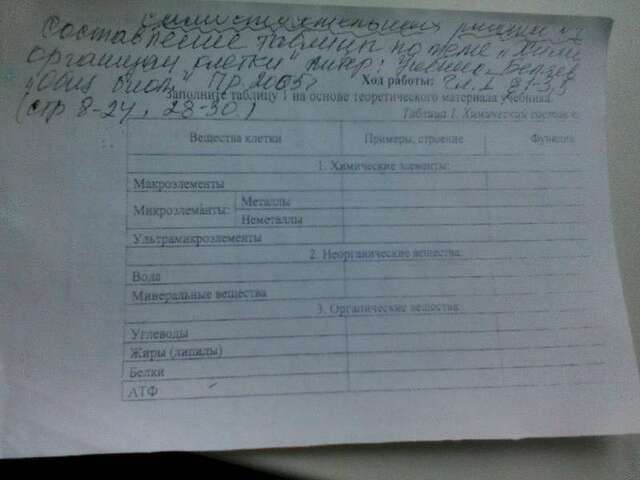 самостоятельная работа
Составление таблиц по теме "Хими
организация клетки" литер: учебник Беляев
"Общ биол" Пр. 2005г Гл. 1 §1-3,5
Ход работы:
(стр 8-24, 28-30.)
Заполните таблицу 1 на основе теоретического материала учебника.
Таблица 1. Химический состав к
Вещества клетки Примеры, строение Функции
1. Химические элементы:
Макроэлементы
Микроэлементы: Металлы
Неметаллы
Ультрамикроэлементы
2. Неорганические вещества:
Вода
Минеральные вещества
3. Органические вещества:
Углеводы
Жиры (липиды)
Белки
АТФ